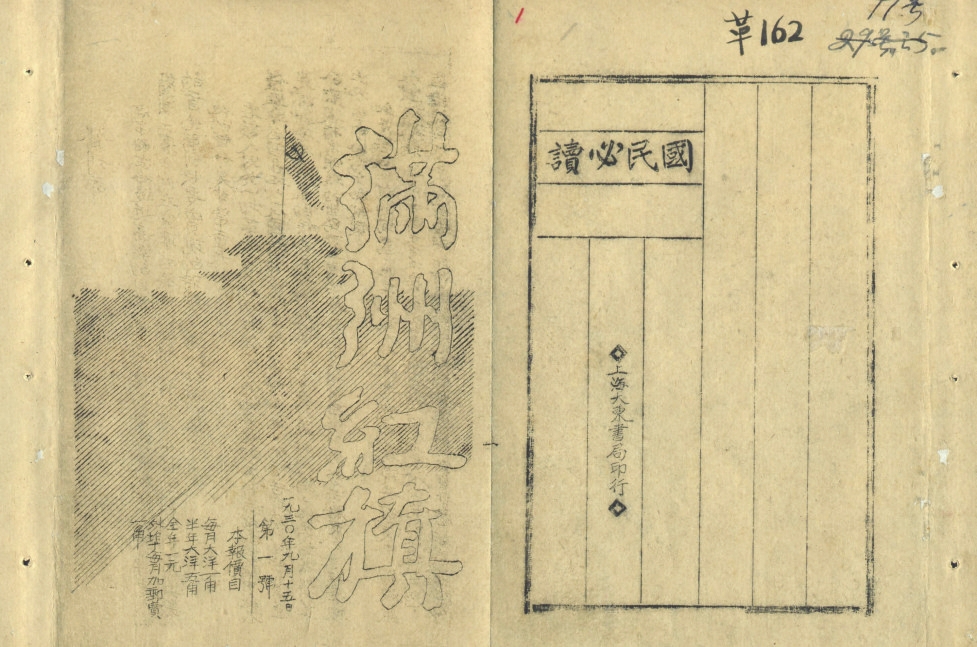 革162
11号
國民必讀
上海大東書局印行
滿洲紅旗
一九三〇年九月十五日
第一號
本報價目
每月大洋一角
半年大洋五角
全年一元
外埠每月加郵費
一角